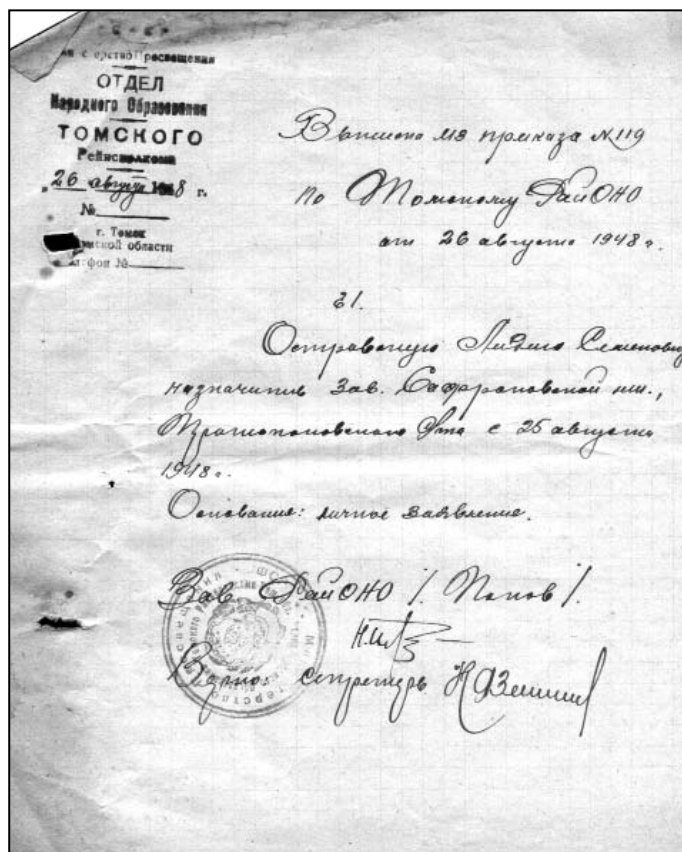 Просвещения
ОТДЕЛ
Народного Образования
ТОМСКОГО
Райисполкома
26 августа 1948 г.
№
г. Томск
Томской области
Телефон №
Выписка из приказа №119
по Томскому РайОНО
от 26 августа 1948 г.
§1.
Островскую Лидию Семеновну
назначить Зав. Сафроновской
с 25 августа
1948 г.
Основание: личное заявление.
Зав. РайОНО /Попов/.
Верно: секретарь